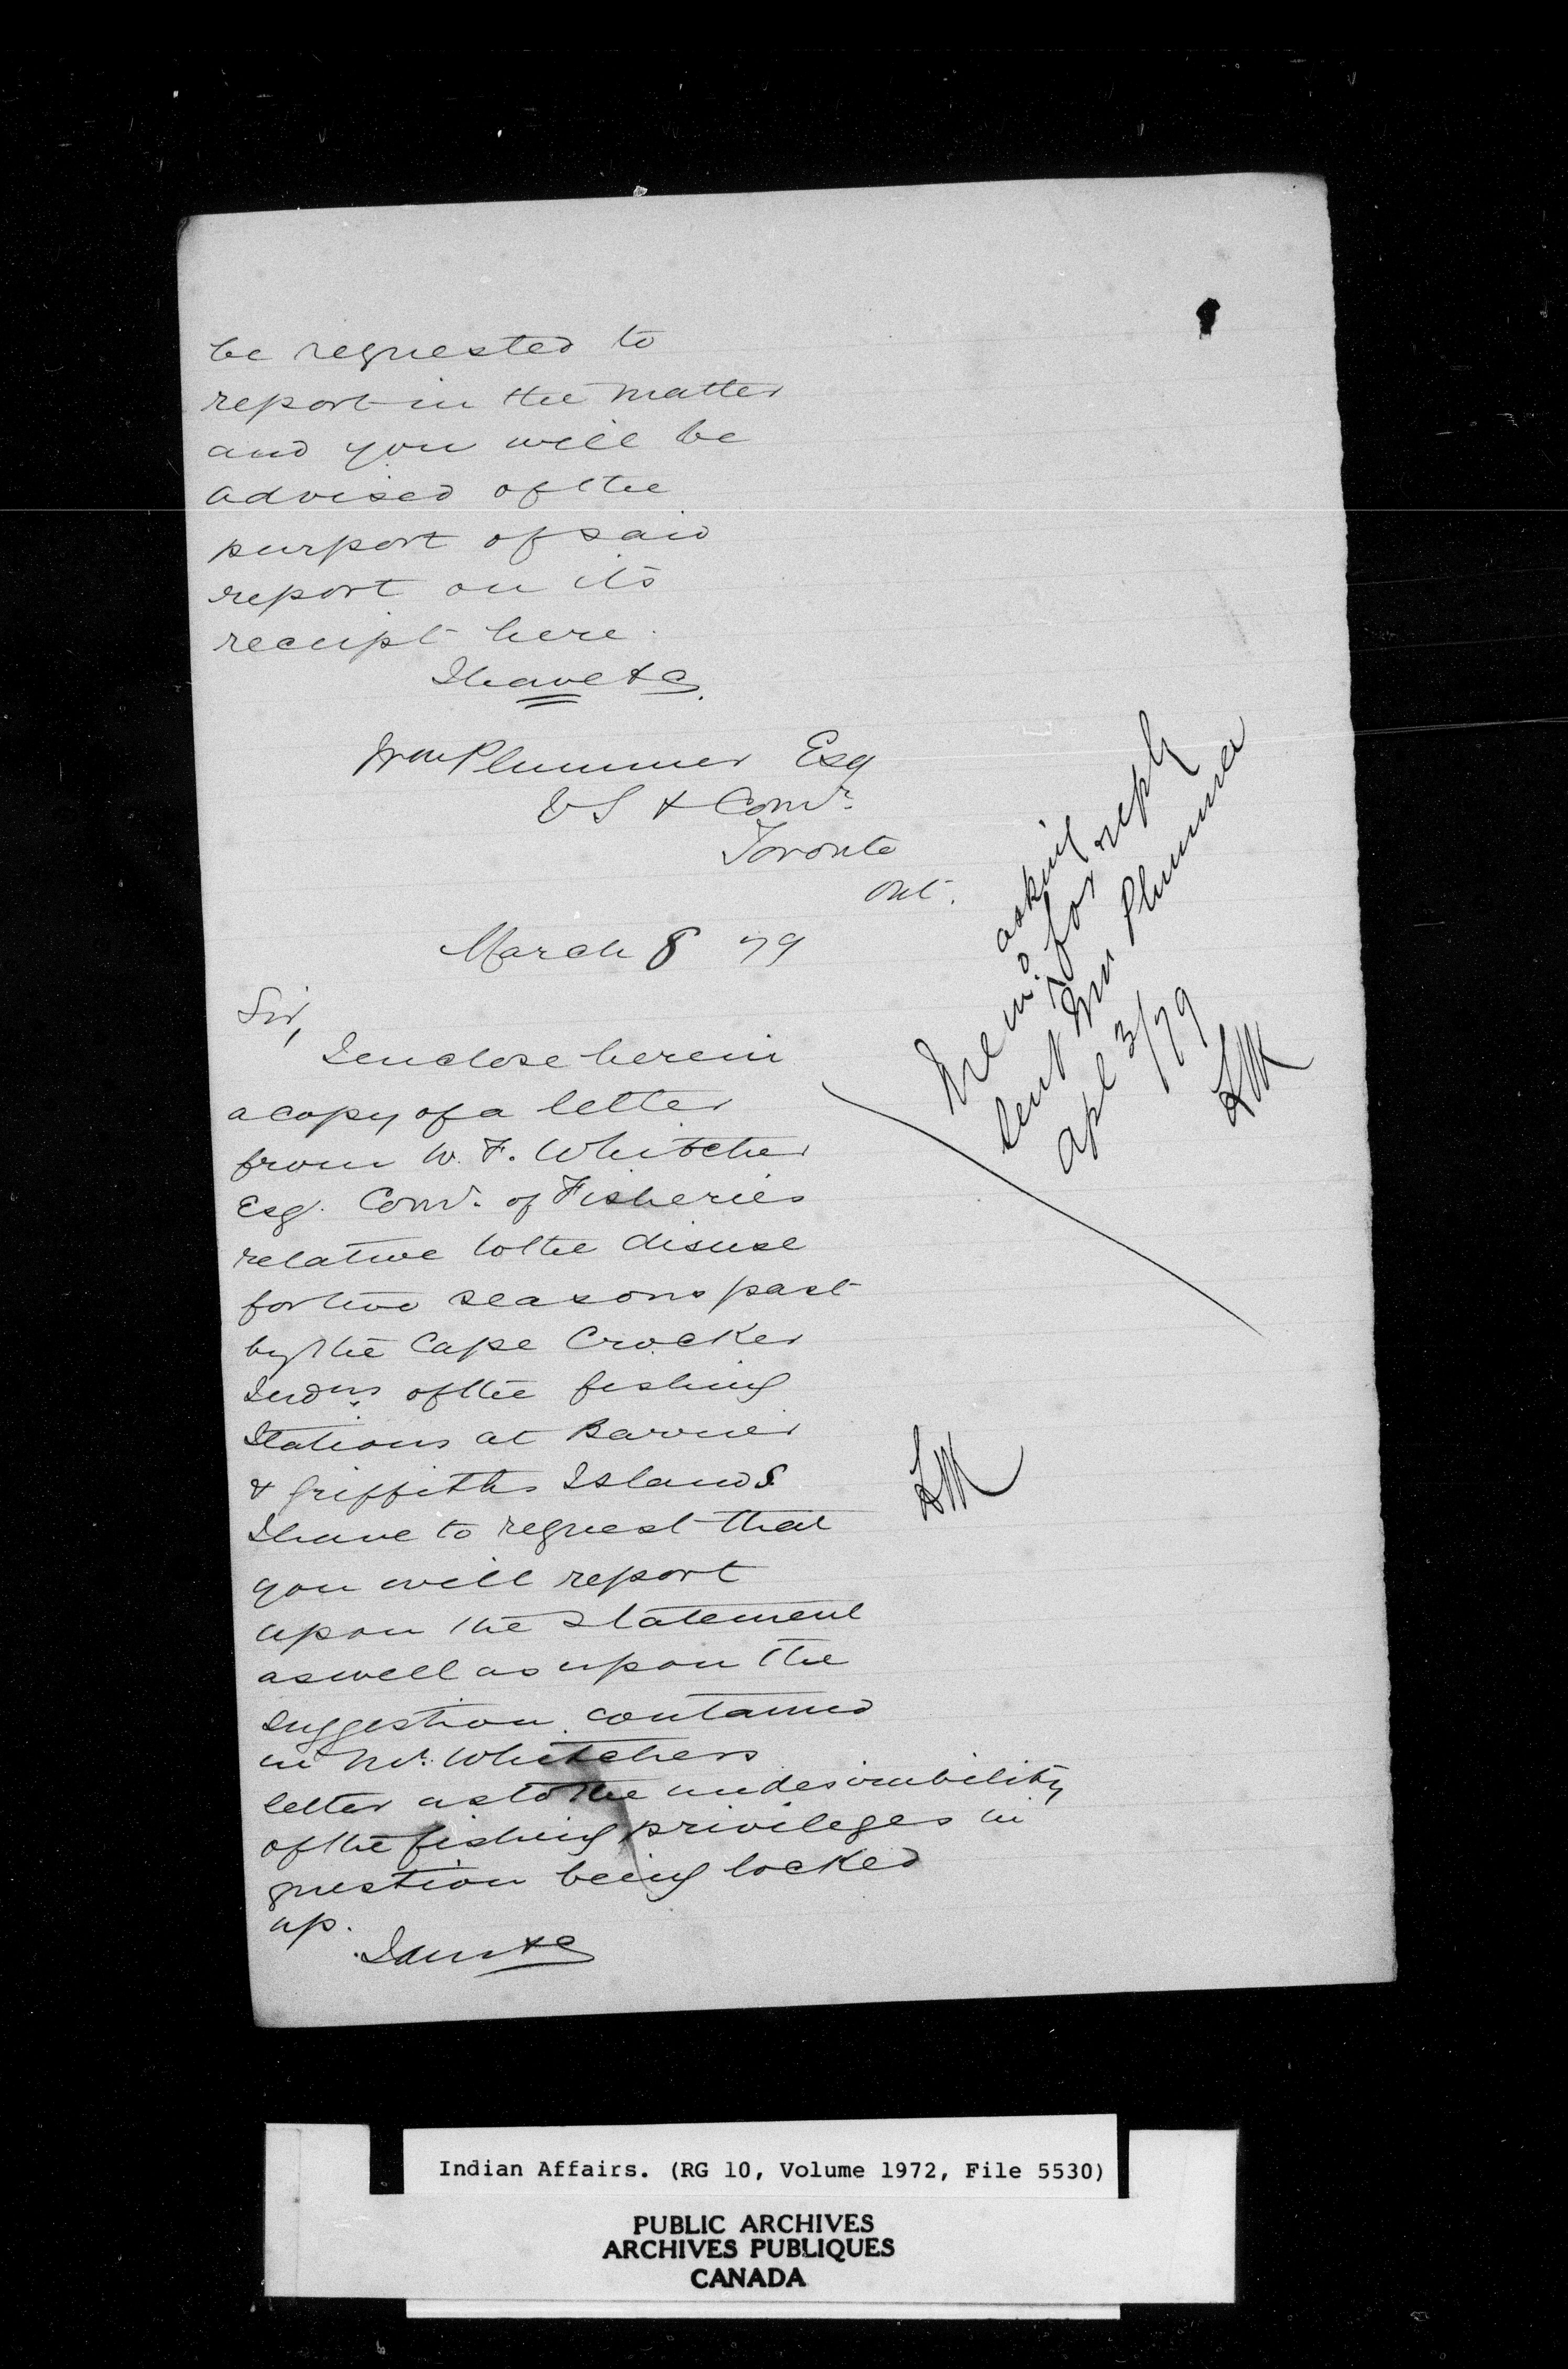 be requested to
report in the matter
and you will be
advised of the
purport of said
report on its
receipt here.
I have &c.
Wm Plummer Esq
V S & Comr.
Toronto
Ont.
March 8 79
Sir,
I enclose herein
a copy of a letter
from W. F. Whitcher
Esq. Comr. of Fisheries
relative to the disuse
for two seasons past
by the Cape Crocker
Indns of the fishing
Stations at Barrier
& Griffiths Islands
I have to request that
you will report
upon the statement
as well as upon the
suggestion contained
in Mr. Whitchers
letter as to the undesirability
of the fishing privileges in
question being locked
up.
I am &c
Memo asking for reply
sent Mr Plummer
Apl 3/79
Indian Affairs. (RG 10, Volume 1972, File 5530)
PUBLIC ARCHIVES
ARCHIVES PUBLIQUES
CANADA